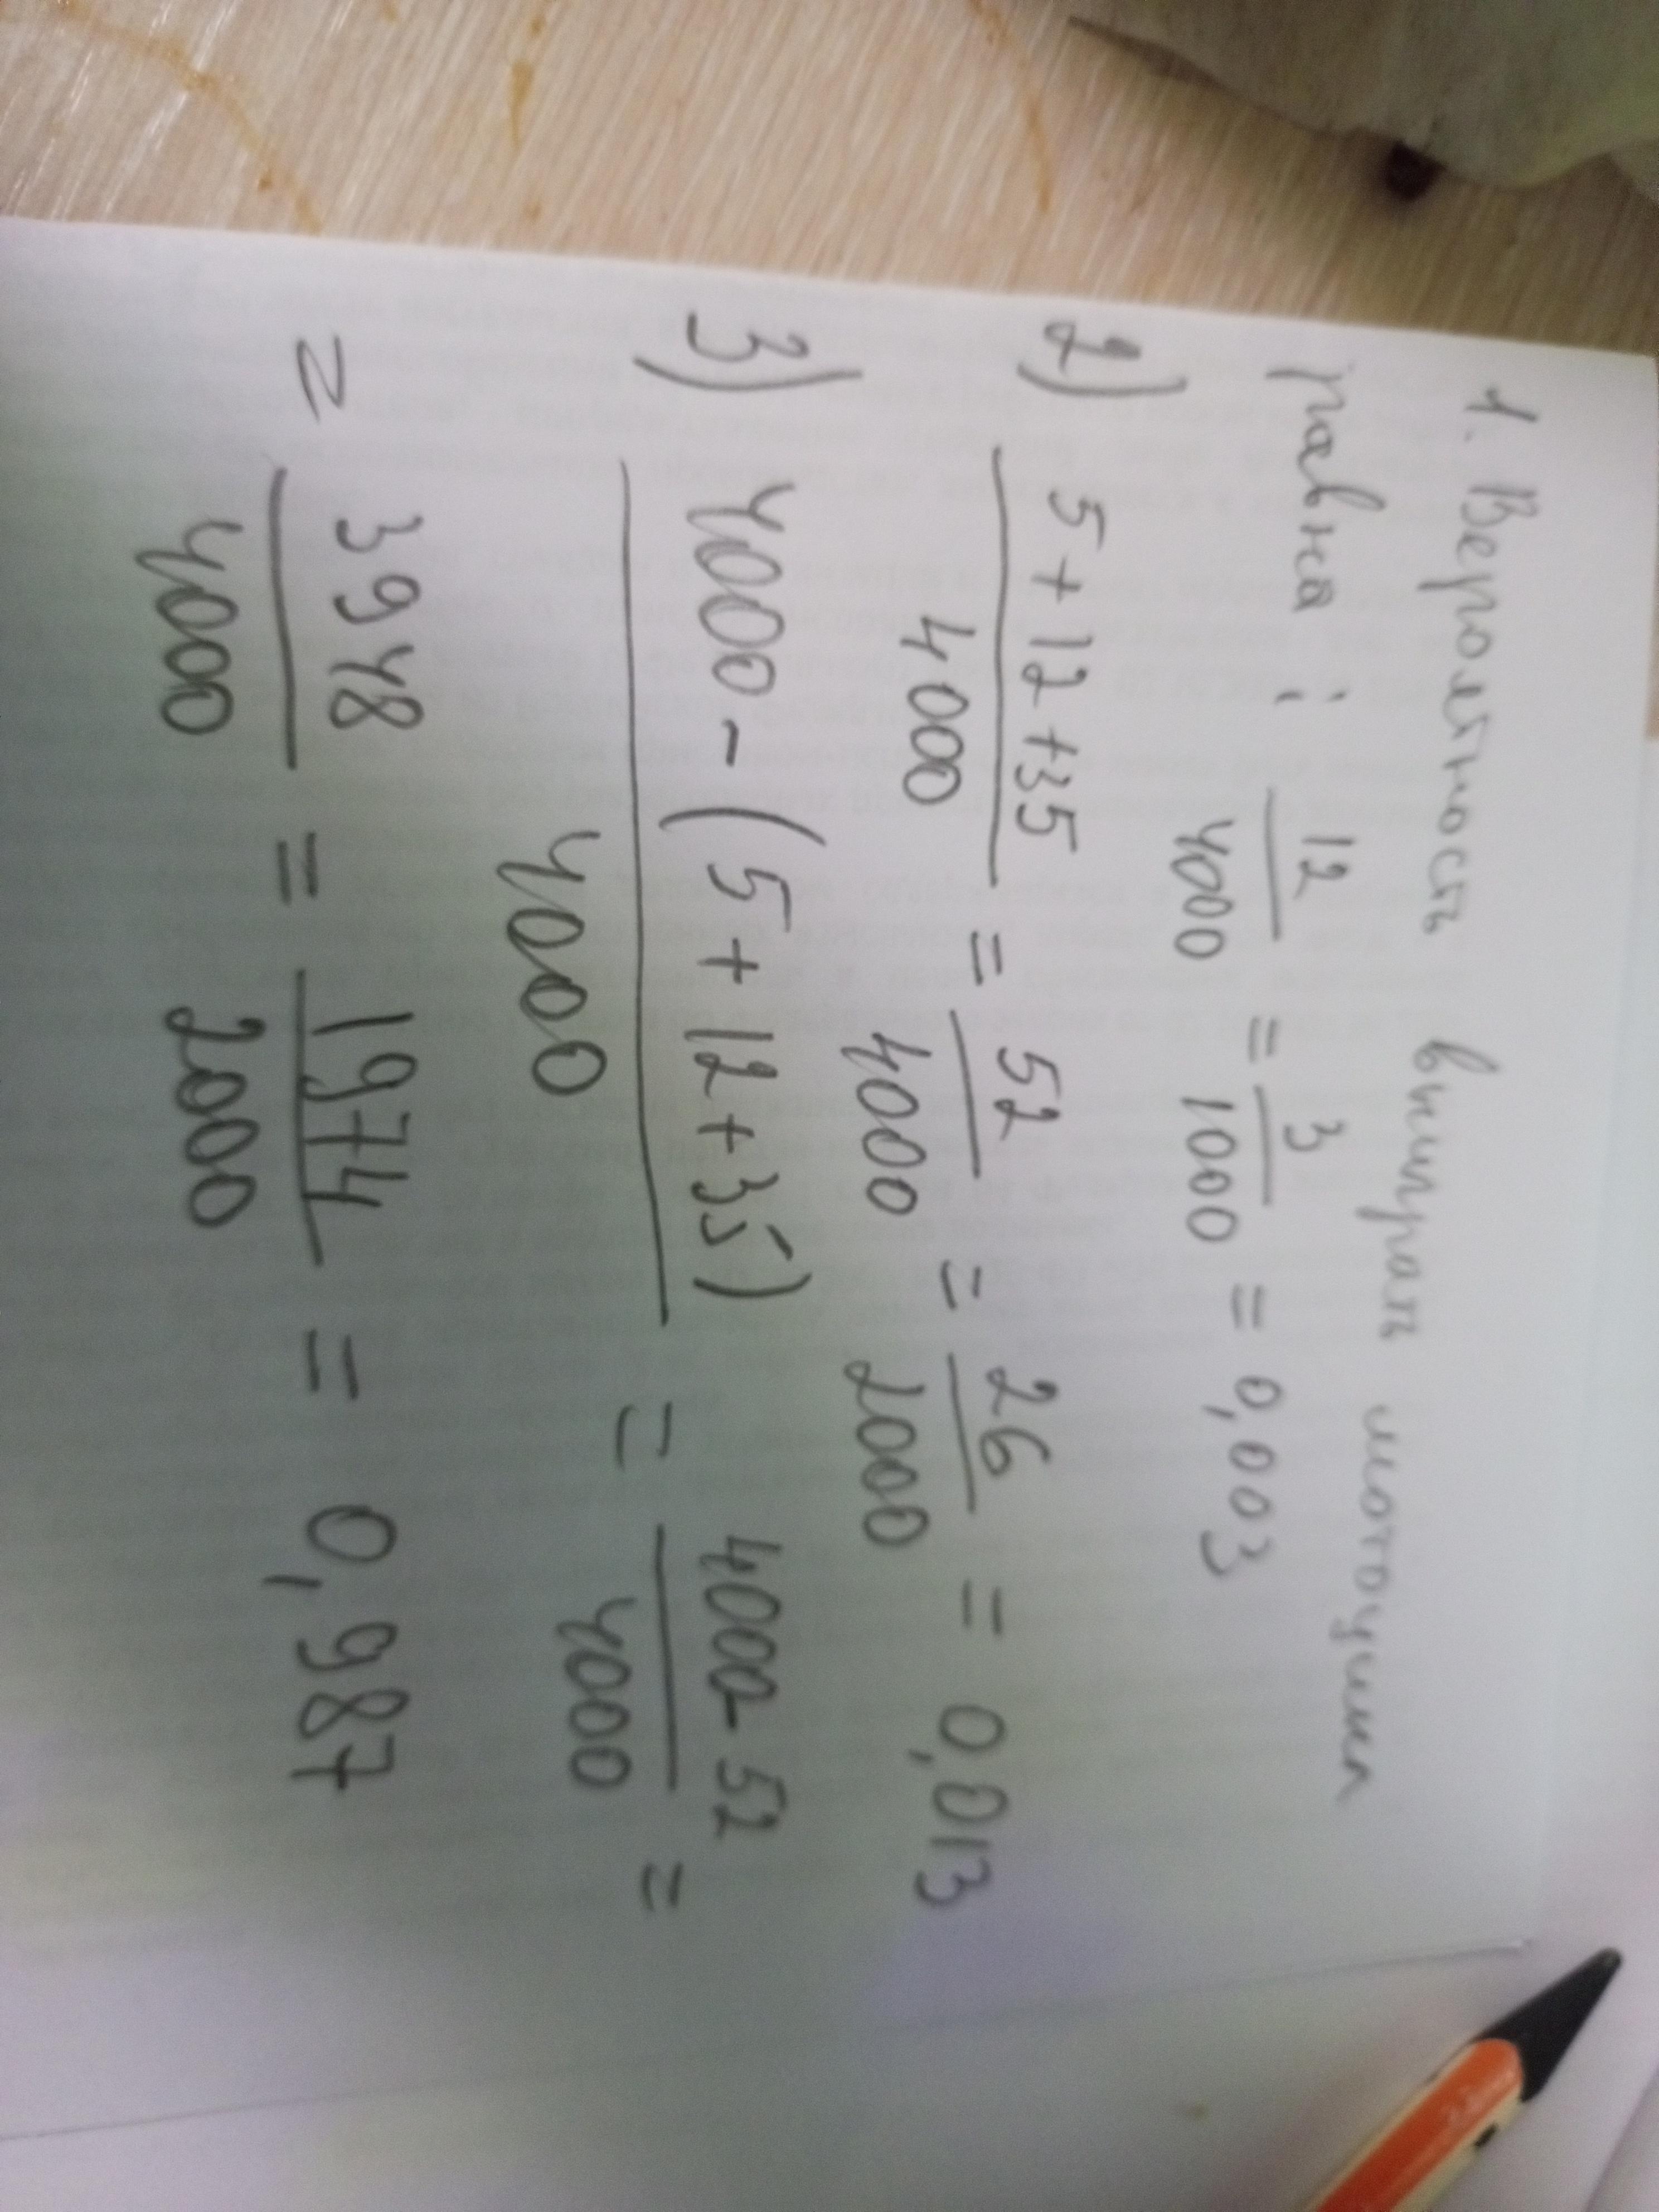 1. Вероятность выиграть мотоцикл
равна: 12/4000 = 3/1000 = 0,003
2) 5+12+35/4000 = 52/4000 = 26/2000 = 0,013
3) 4000-(5+12+35)/4000 = 4000-52/4000 =
= 3948/4000 = 1974/2000 = 0,987